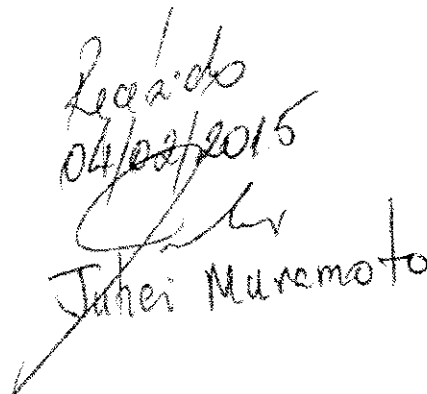 Recebido
04/02/2015
Juhei Muramoto